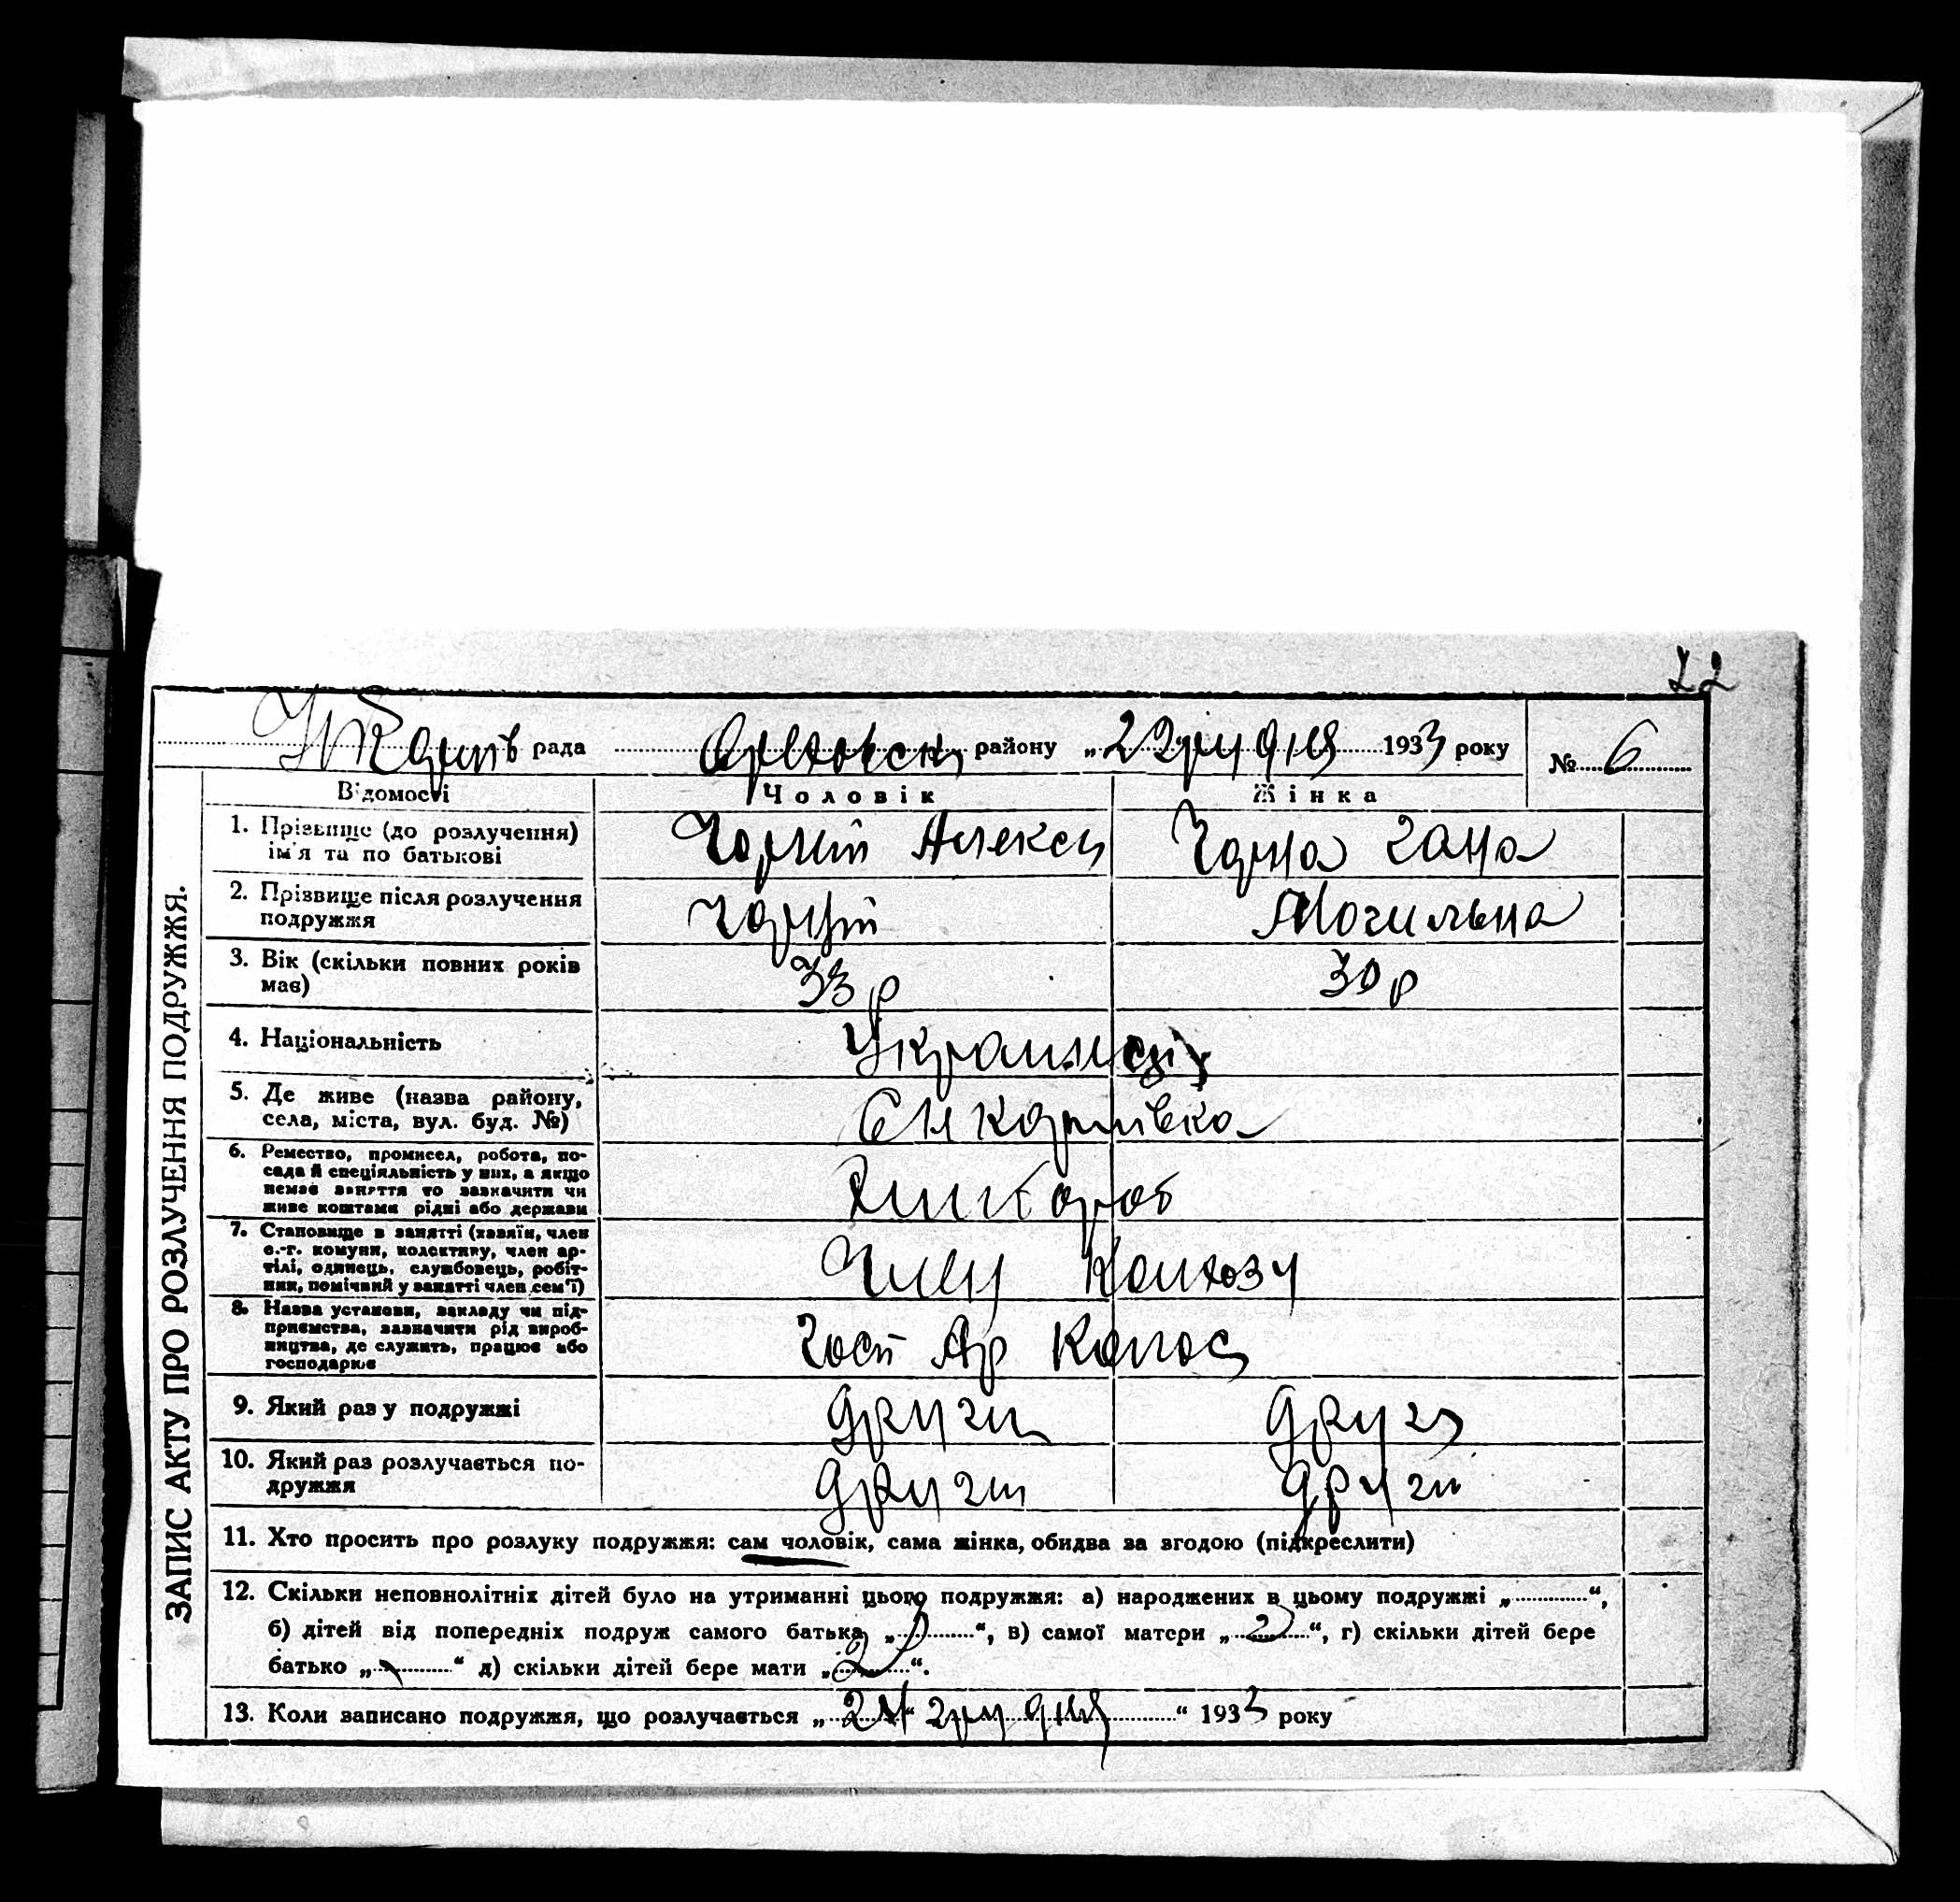 72
рада Оріховськ району „22 грудня 1933 року № 6
ЗАПИС АКТУ ПРО РОЗЛУЧЕННЯ ПОДРУЖЖЯ.
Відомості Чоловік Жінка
1. Прізвище (до розлучення) ім'я та по батькові Чорний Алексій Чорна Гана
2. Прізвище після розлучення подружжя Чорний Могильна
3. Вік (скільки повних років має) 33 р 30 р
4. Національність Украинсці
5. Де живе (назва району, села, міста, вул. буд. №) карпівка
6. Ремество, промисел, робота, по-
сада й спеціяльність у них, а якщо
немає заняття то зазначити чи
живе коштами рідні або держави Хлибороб
7. Становище в занятті (хазяїн, член
с.-г. комуни, колективу, член ар-
тілі, одинець, службовець, робіт-
ник, помічний у занятті член сем'ї) Члени Колхозу
8. Назва установи, закладу чи під-
приємства, зазначити рід вироб-
ництва, де служить, працює або
господарює Ар Колос
9. Який раз у подружжі други други
10. Який раз розлучається по-
дружжя други други
11. Хто просить про розлуку подружжя: сам чоловік, сама жінка, обидва за згодою (підкреслити)
12. Скільки неповнолітніх дітей було на утриманні цього подружжя: а) народжених в цьому подружжі „ “,
б) дітей від попередніх подруж самого батька „ “, в) самої матери „2“, г) скільки дітей бере
батько „ “ д) скільки дітей бере мати „2“.
13. Коли записано подружжя, що розлучається „ “ грудня “ 1933 року